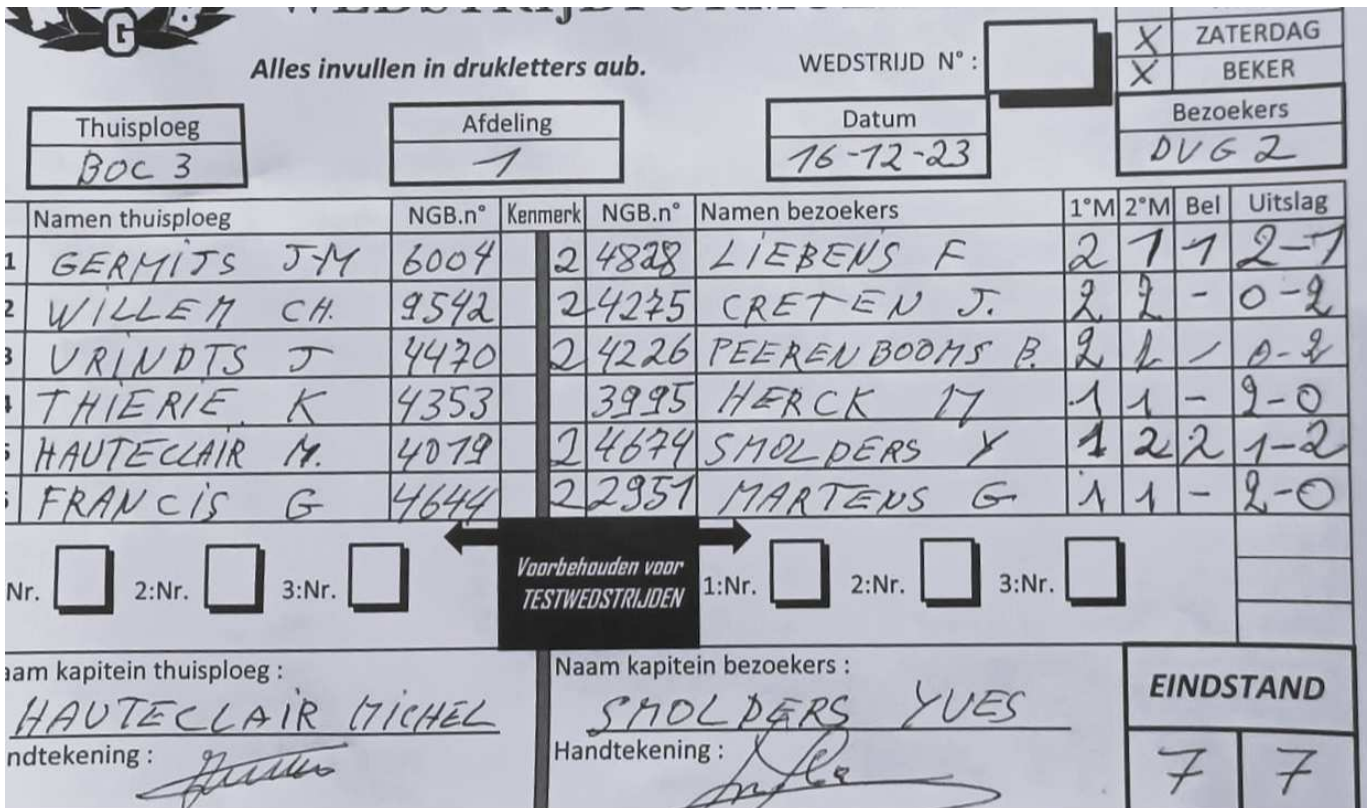 G
Alles invullen in drukletters aub.
WEDSTRIJD N° :
X ZATERDAG
X BEKER
Thuisploeg
BOC 3
Afdeling
1
Datum
16-12-23
Bezoekers
DVG 2
Namen thuisploeg NGB.n° Kenmerk NGB.n° Namen bezoekers 1°M 2°M Bel Uitslag
1 GERMITS J-M 6004 2 4828 LIEBENS F 2 1 1 2-1
2 WILLEM CH. 9542 2 4275 CRETEN J. 2 2 - 0-2
3 VRINDTS J 4470 2 4226 PEERENBOOMS B. 2 2 - 0-2
THIERIE K 4353 3995 HERCK M 1 1 - 2-0
HAUTECLAIR M. 4019 2 4674 SMOLDERS Y 1 2 2 1-2
FRANCIS G 4644 2 2951 MARTENS G 1 1 - 2-0
Nr. 2:Nr. 3:Nr. Voorbehouden voor TESTWEDSTRIJDEN 1:Nr. 2:Nr. 3:Nr.
aam kapitein thuisploeg :
HAUTECLAIR MICHEL
ndtekening :
Naam kapitein bezoekers :
SMOLDERS YVES
Handtekening :
EINDSTAND
7 7